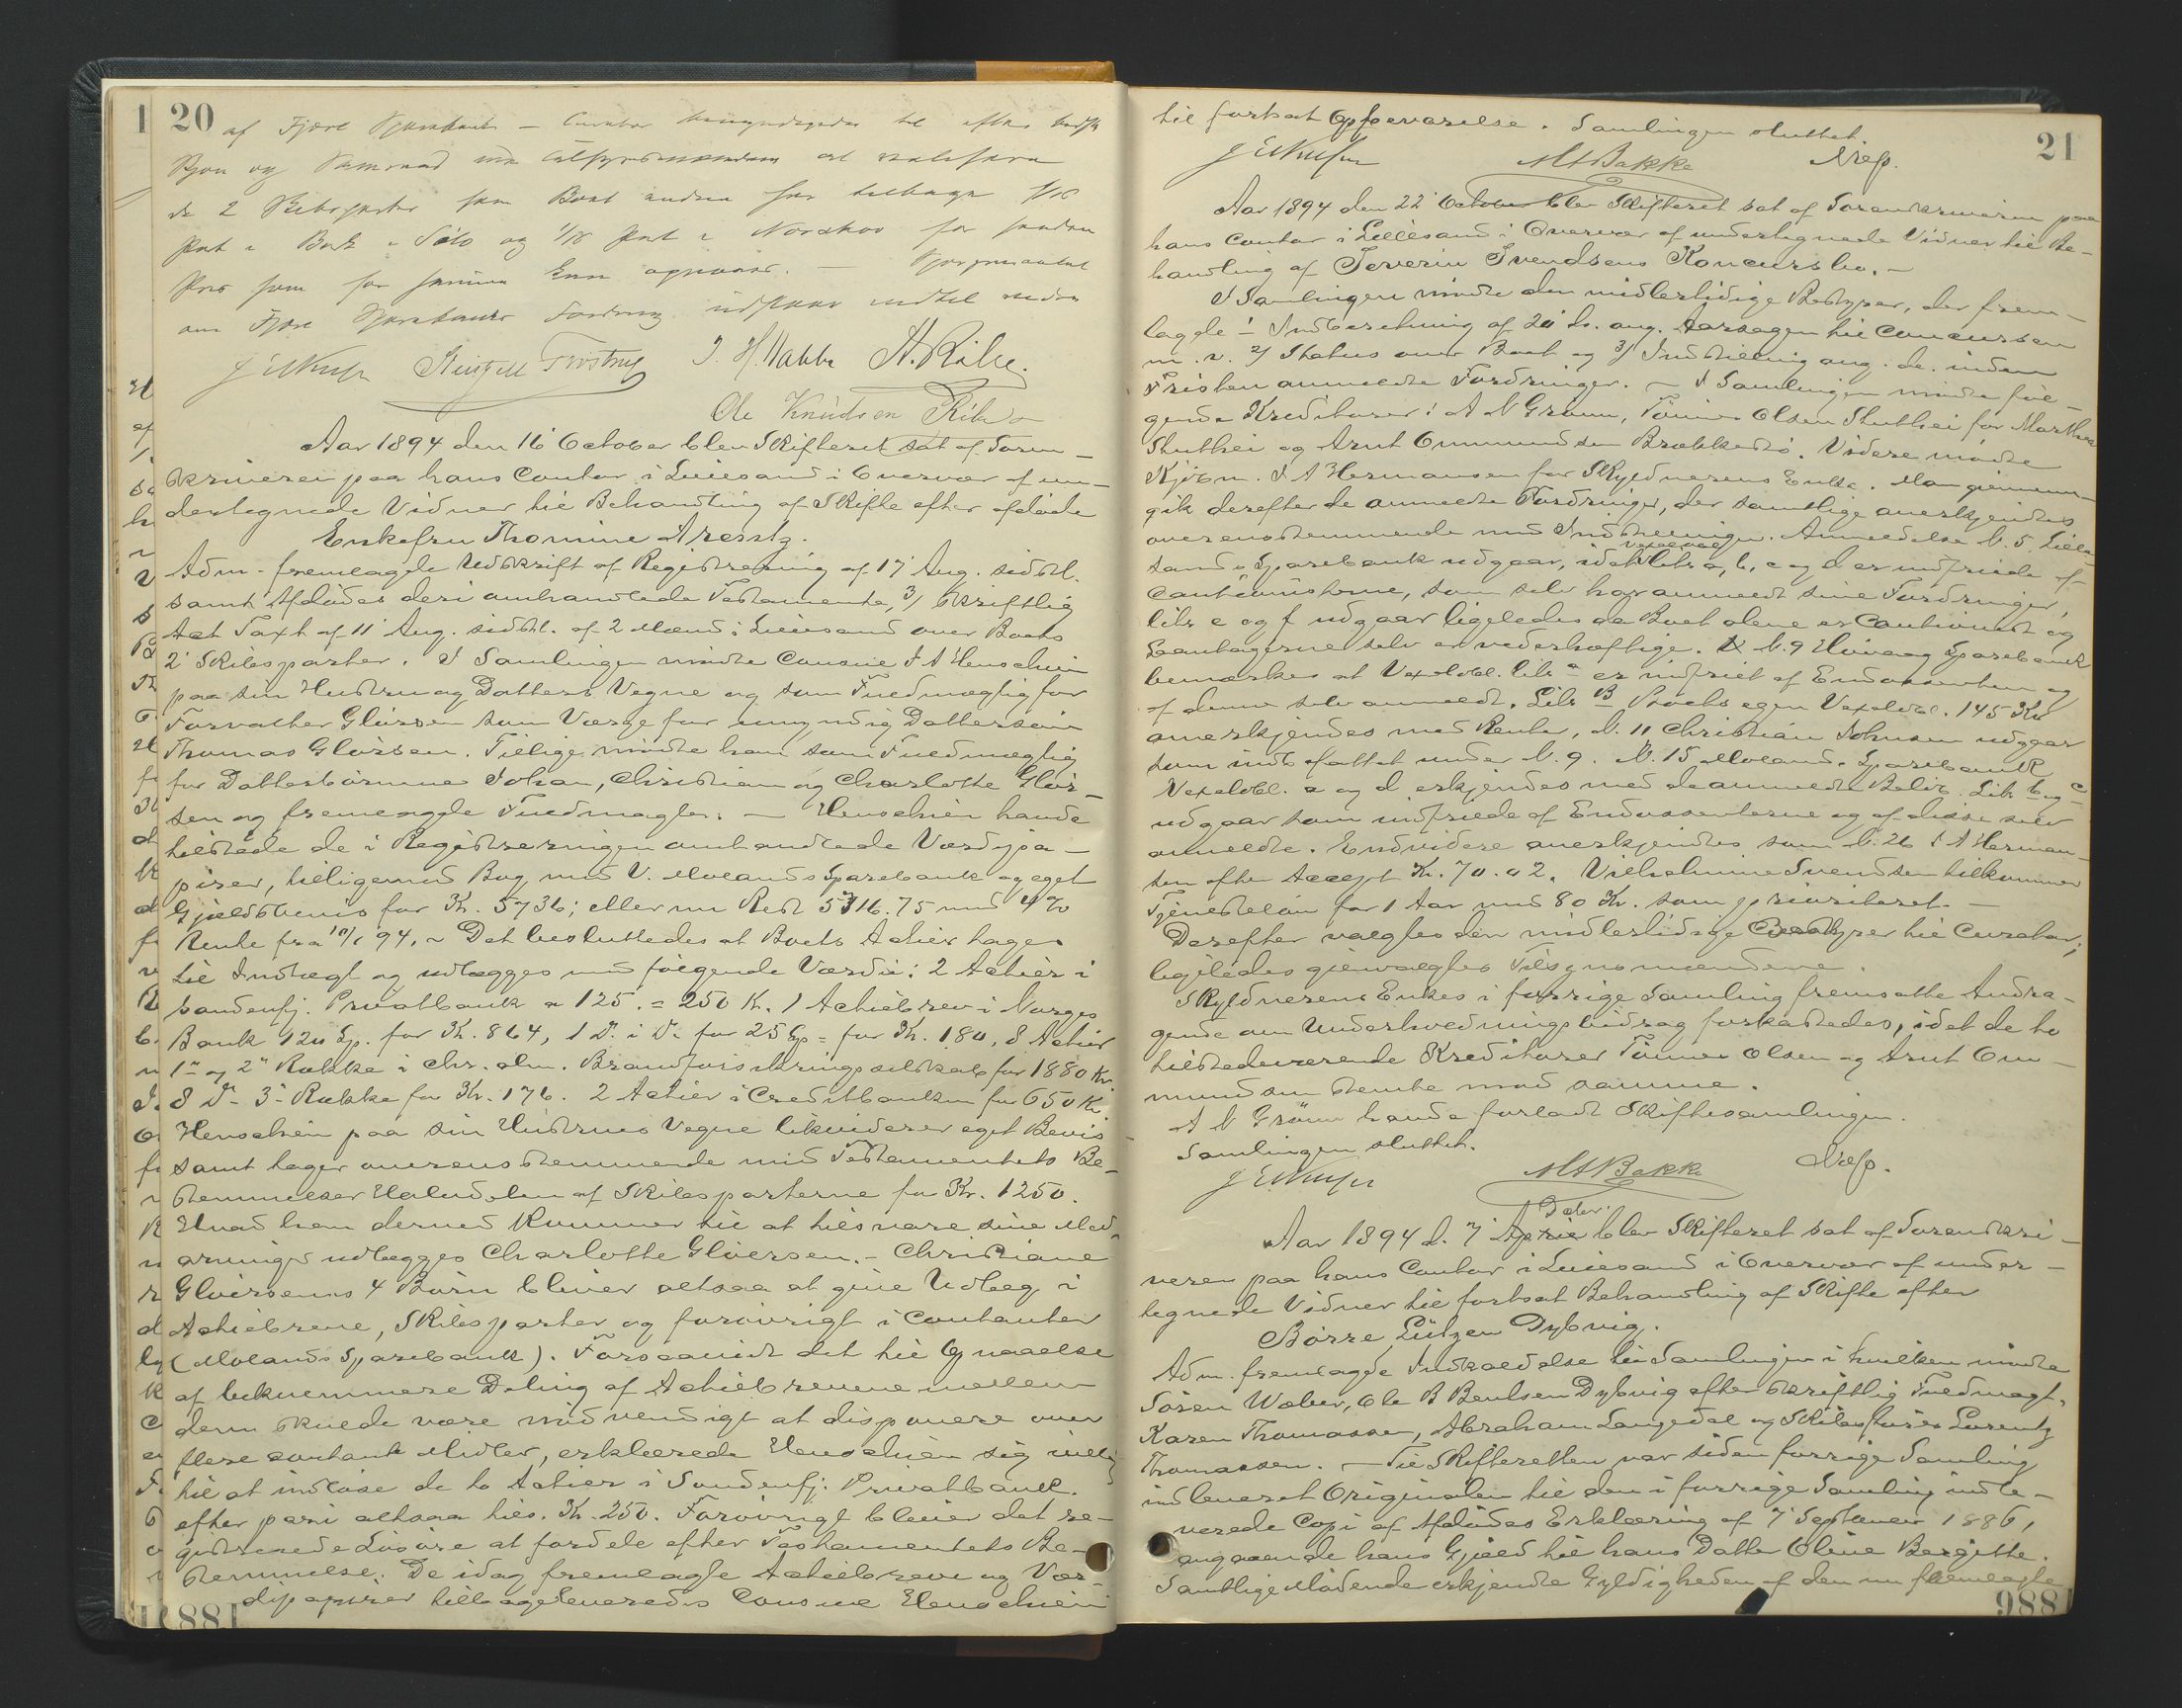 20
af Fjære Sparebank — Curator bemyndigedes til efter
Skjøn og Samraad med Tilsynsmændene at realisere
de 2 Skibsparter som Boet endnu har tilbage 1/16
Part i Bark "Solo og 1/18 Part i Nordhav for saadan
Pris som for samme kan opnaaes. — Spørgsmaalet
om Fjære Sparebanks Fordring udstaar indtil videre
Ole Knudsen Ribe
Aar 1894 den 16' October blev Skifteret sat af Soren-
skriveren paa hans Contor i Lillesand i Overvær af un-
dertegnede Vidner til Behandling af Skifte efter afdøde
Enkefru Thomine Arentz.
Adm. fremlagde Udskrift af Registrering af 17' Aug. sidstl.
samt Afdødes deri omhandlede Testamente, 3) skriftlig
Act Taxt af 11' Aug. sidstl. af 2 Mænd i Lillesand over Boets
2' Skibsparter. I Samlingen mødte Consul J A Henschien
paa sin Hustru og Datters Vegne og som Fuldmægtig for
Forvalter Glørsen som Værge for umyndig Dattersøn
Thomas Glørsen. Tillige mødte han som Fuldmægtig
for Datterbørnene Johan, Christiane og Charlotte Glør-
sen og fremlagde Fuldmagter. — Henschien havde
tilstede de i Registreringen omhandlede Værdipa-
pirer, tilligemed Bog med V. Molands Sparebank og eget
Gjældsbevis for Kr. 5736; eller nu Rest 5716.75 med 4%
Rente fra 94. — Det besluttedes at Boets Actier tages
til Indtægt og udlægges med følgende Værdi: 2 Actier i
Søndenfj. Privatbank a 125. = 250 Kr. 1 Actiebrev i Norges
Bank 120 Sp. for Kr. 864, 1 Do. i Do. for 25 Sp = for Kr. 180, 8 Actier
1ste og 2den Række i Chr. alm. Brandforsikringsselskab for 1880 Kr.
8 Do. 3die Række for Kr. 176. 2 Actier i Creditbanken for 650 Kr.
Henschien paa sin Hustrues Vegne likviderer eget Bevis
samt tager overensstemmende med Testamentets Be-
stemmelser Halvdelen af Skibsparterne for Kr. 1250.
Hvad han dermed kommer til at tilsvare sine Med-
arvinger udlægges Charlotte Gløersen. — Christiane
Gløersens 4 Børn bliver altsaa at give Udlæg i
Actiebreve, Skibsparter og forøvrigt i Contanter
(Molands Sparebank). Forsaavidt det til Opnaaelse
af bekvemmere Deling af Actiebrevene mellem
dem skulde være nødvendigt at disponere over
flere contante Midler, erklærede Henschien sig villig
til at indløse de to Actier i Søndenfj. Privatbank.
efter pari altsaa tils. Kr. 250. Forøvrigt bliver det re-
gistrerede Løsøre at fordele efter Testamentets Be-
stemmelse. De idag fremlagte Actiebreve og Vær-
dipapirer tilbageleveredes Consul Henschien
21
til fortsat Opbevarelse. Samlingen sluttet.
MABakke
Aar 1894 den 22' October blev Skifteret sat af Sorenskriveren paa
hans Contor i Lillesand i Overvær af undertegnede Vidner til Be-
handling af Severin Svendsens Koncursbo. —
I Samlingen mødte den midlertidige Bestyrer, der frem-
lagde 1) Indberetning af 20' ds. ang. Aarsagen til Concursen
m. v. 2) Status over Boet og 3) Indstilling ang. de. inden
Fristen anmeldte Fordringer. — I Samlingen mødte føl-
gende Kreditorer: A N Grønn, Tønnes Olsen Stuthei for Marthea
Stuthei og Arnt Ommundsen Brækkestø. Videre mødte
Kjøbm. J A Hermansen for Skyldnerens Enke. Man giennem-
gik derefter de anmeldte Fordringer, der samtlige anerkjendtes
overensstemmende med Indstillingen. Anmeldelse N. 5. Lille-
sands Sparebank udgaar, idet Vexelobl. Litr. a, b, c og d er indfriede af
Cautionisterne, som selv har anmeldt sine Fordringer,
litr. e og f udgaar ligeledes da Boet alene er Cautionist og
Laantagerne selv er vederhæftige. N. 9 Høivaag Sparebank
bemærkes at Vexelobl. litr. a er indfriet af Endossenten og
af denne selv anmeldt. Litr. B Boets egen Vexelobl. 145 Kr
anerkjendes med Rente, N. 11 Christian Johnsen udgaar
som indbefattet under N. 9. N. 15 Molands Sparebank
Vexelobl. a og d erkjendes med de anmeldte Beløb. Litr. b og c
udgaar som indfriede af Endossenterne og af disse selv
anmeldte. Endvidere anerkjendtes som N. 26 J A Herman-
sen efter Accept Kr. 70.02. Vilhelmine Svendsen tilkommer
Tjenesteløn for 1 Aar med 80 Kr. som prioriteret. —
Derefter valgtes den midlertidige Bestyrer til Curator;
ligeledes gjenvalgtes Tilsynsmændene.
Skyldnerens Enkes i forrige Samling fremsatte Andra-
gende om Underholdningsbidrag forkastedes, idet de to
tilstedeværende Kreditorer Tønnes Olsen og Arnt Om-
mundsen stemte mod samme.
A N Grønn havde forladt Skiftesamlingen.
Samlingen sluttet.
MABakke
Dcbr.
Aar 1894 d. 7' April blev Skifteret sat af Sorenskri-
veren paa hans Contor i Lillesand i Overvær af under-
tegnede Vidner til fortsat Behandling af Skifte efter
Børre Lützen Dybvig.
Adm. fremlagde Indkaldelse til Samlingen i hvilken mødte
Søren Weber, Ole B Bentsen Dybvig efter skriftlig Fuldmagt,
Karen Thomassen, Abraham Langedal og Skibsfører Lorentz
Thomassen. — Til Skifteretten var siden forrige Samling
indleveret Originalen til den i forrige Samling indle-
verede Copi af Afdødes Erklæring af 7' September 1886,
angaaende hans Gjæld til hans Datter Oline Bergitte.
Samtlige Mødende erkjendte Gyldigheden af den nu fremlagte